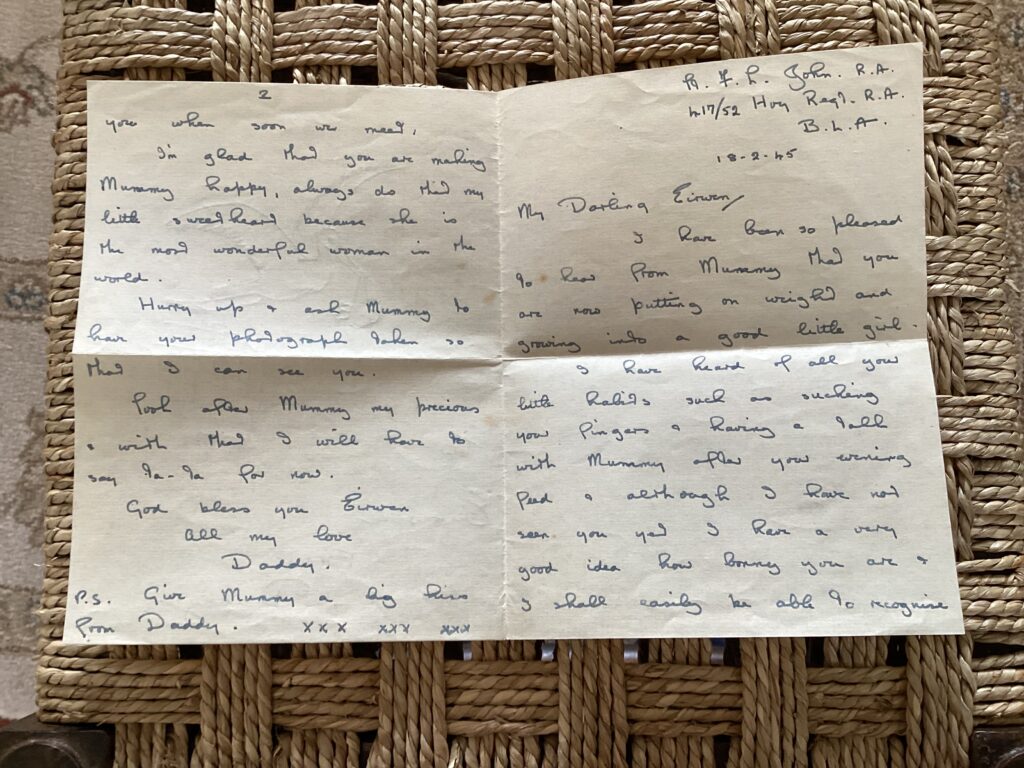 F. L. John. R.A.
417/52 Hvy Regt. R.A.
B.L.A.
18-2-45
My Darling Eirwen
I have been so pleased
to hear from Mummy that you
are now putting on weight and
growing into a good little girl.
I have heard of all your
little habits such as sucking
your fingers & having a talk
with Mummy after your evening
feed & although I have not
seen you yet I have a very
good idea how bonny you are &
I shall easily be able to recognise
2
you when soon we meet.
I'm glad that you are making
Mummy happy, always do that my
little sweetheart because she is
the most wonderful woman in the
world.
Hurry up & ask Mummy to
have your photograph taken so
that I can see you.
Look after Mummy my precious
& with that I will have to
say Ta-Ta for now.
God bless you Eirwen
All my love
Daddy.
P.S. Give Mummy a big kiss
from Daddy. xxx xxx xxx